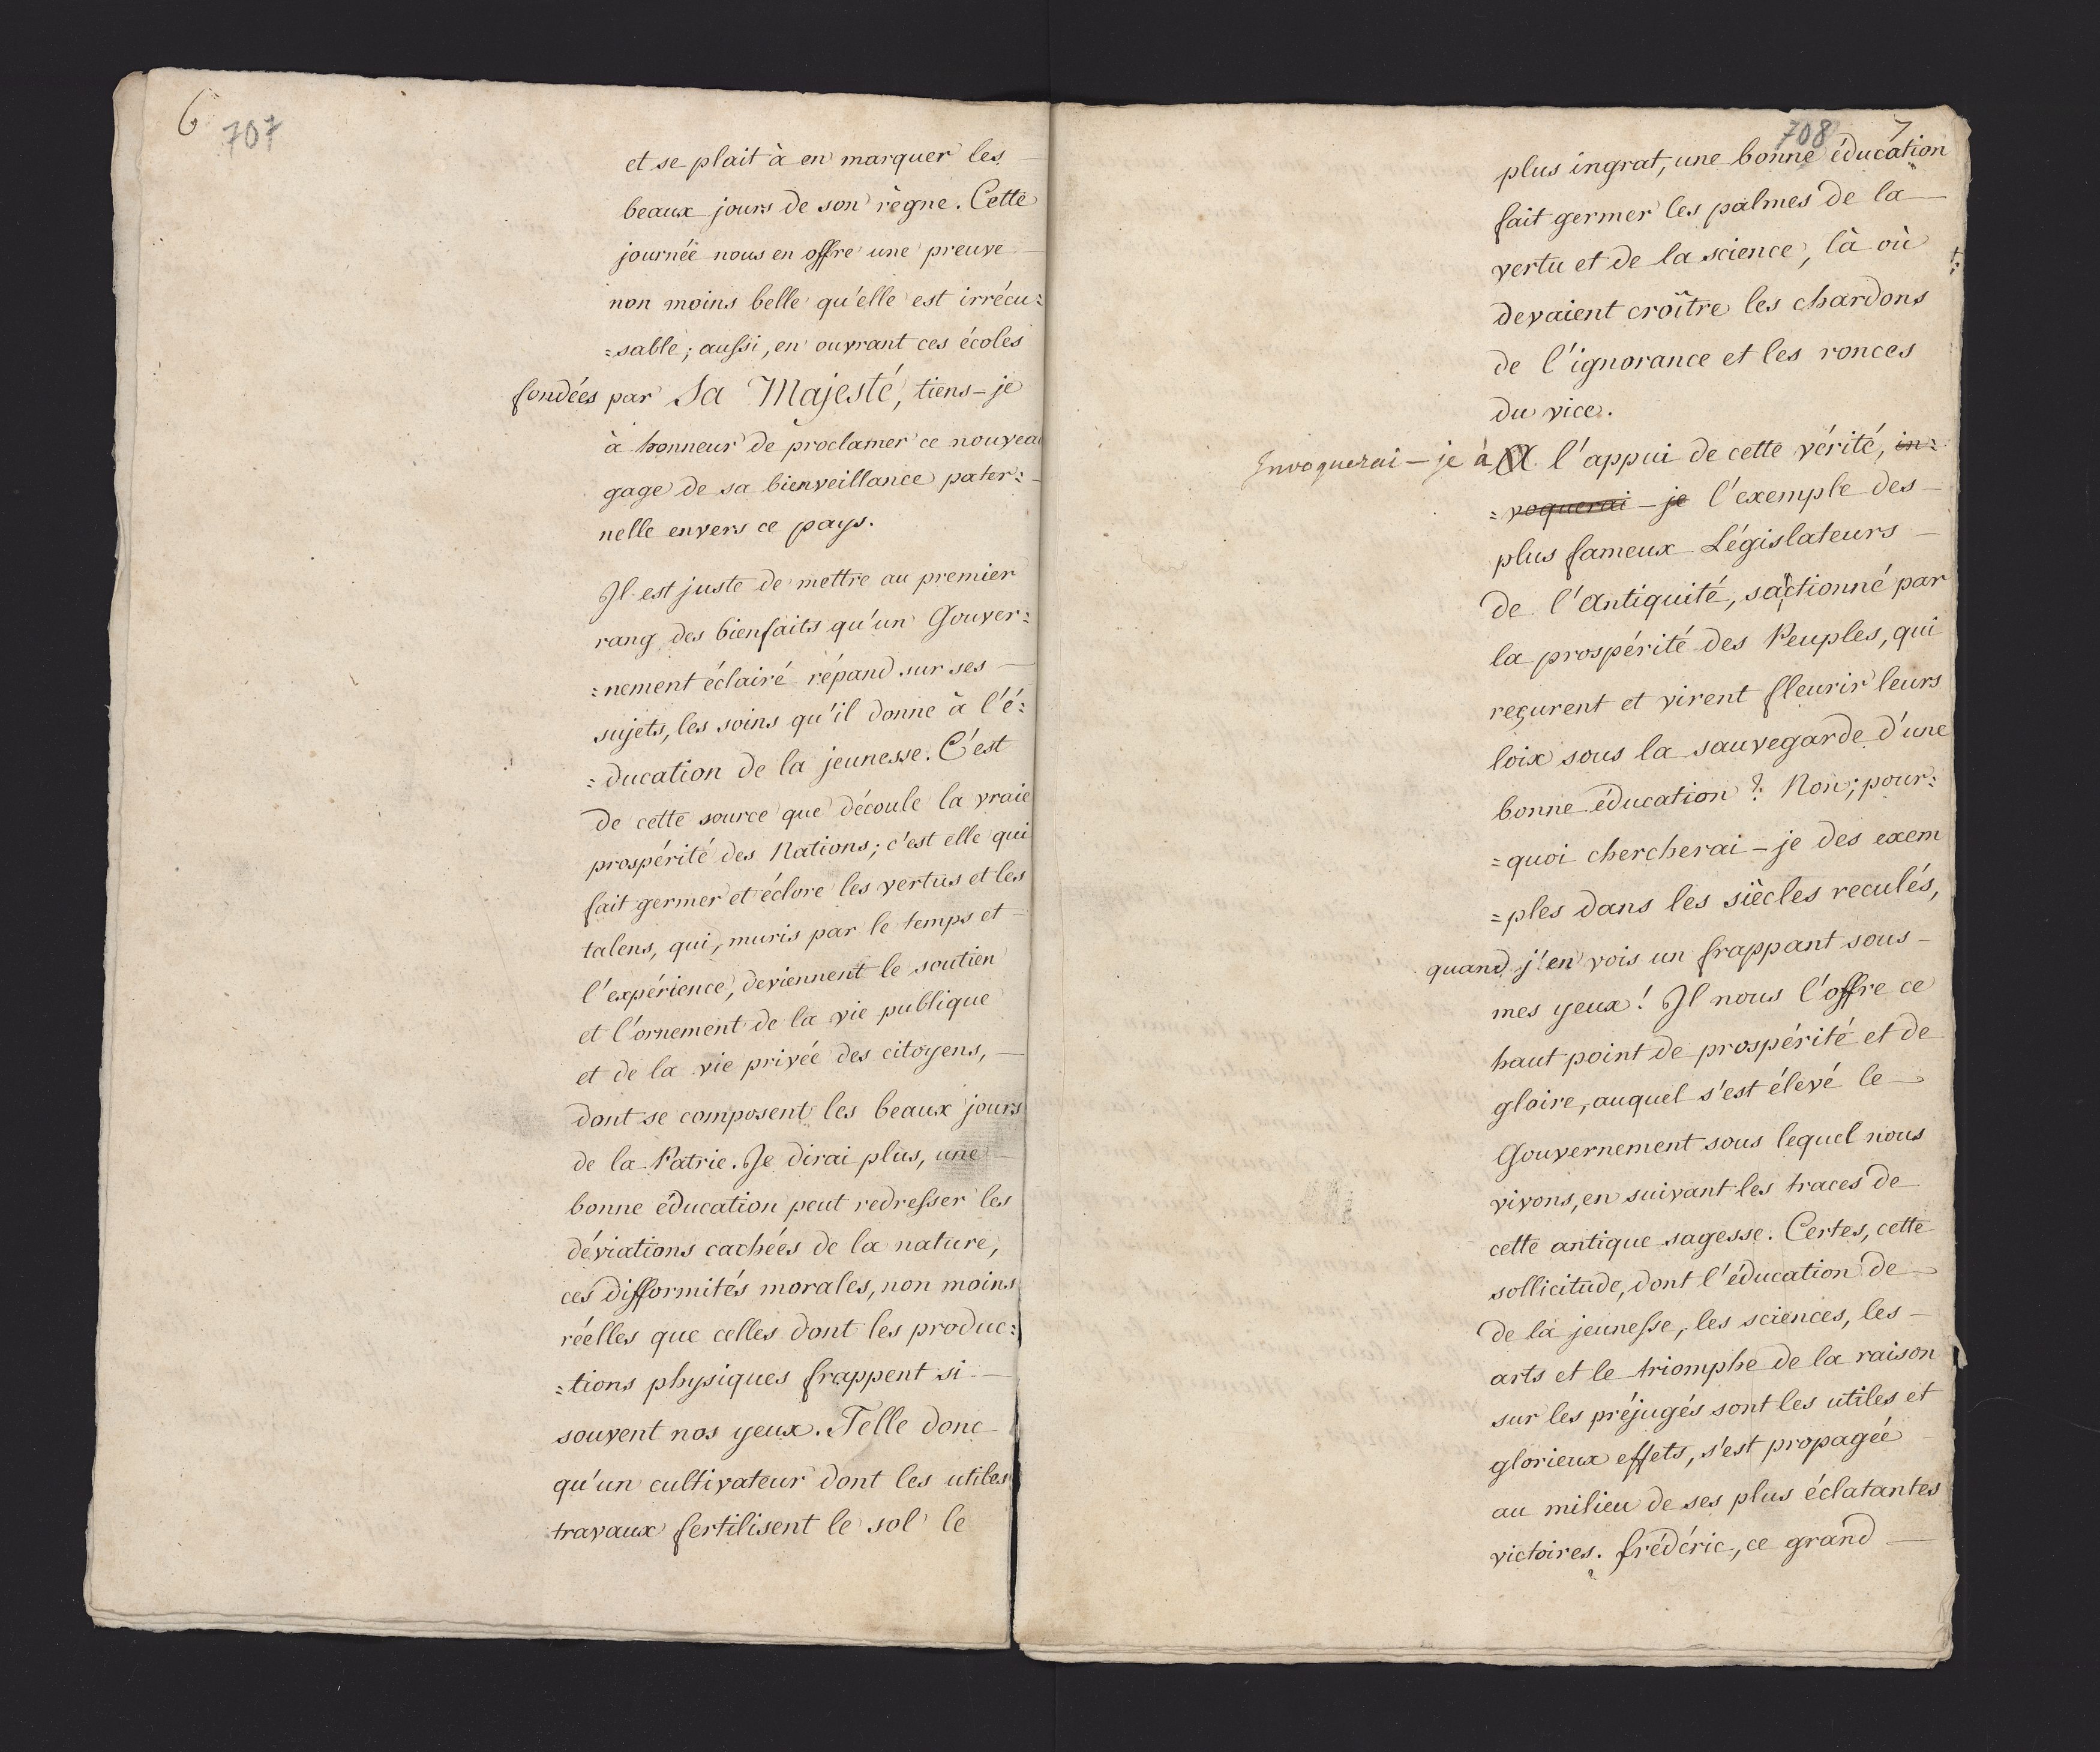 6
707
et se plait à en marquer les
beaux jours de son règne. Cette
journée nous en offre une preuve
non moins belle qu'elle est irrécu=
=sable; aussi, en ouvrant ces écoles
fondées par Sa Majesté, tiens-je
à honneur de proclamer ce nouveau
gage de sa bienveillance pater=
nelle envers ce pays.
Il est juste de mettre au premier
rang des bienfaits qu'un Gouver=
=nement éclairé répand sur ses
sujets, les soins qu'il donne à l'é=
=ducation de la jeunesse. C'est
de cette source que découle la vraie
prospérité des Nations; c'est elle qui
fait germer et éclore les vertus et les
talens, qui, muris par le temps et
l'expérience, deviennent le soutien
et l'ornement de la vie publique
et de la vie privée des citoyens,
dont se composent les beaux jours
de la Patrie. Je dirai plus, une
bonne éducation peut redresser les
déviations cachées de la nature,
ces difformités morales, non moins
réelles que celles dont les produc=
=tions physiques frappent si
souvent nos yeux. Telle donc
qu'un cultivateur dont les utiles
travaux fertilisent le sol le
708
7
plus ingrat, une bonne éducation
fait germer les palmes de la
vertu et de la science, là où
devaient croître les chardons
de l'ignorance et les ronces
du vice.
Invoquerai-je à A l'appui de cette vérité, in=
=voquerai-je l'exemple des
plus fameux Législateurs
de l'Antiquité, sanctionné par
la prospérité des Peuples, qui
reçurent et virent fleurir leurs
loix sous la sauvegarde d'une
bonne éducation? Non; pour=
=quoi chercherai-je des exem
=ples dans les siècles reculés,
quand j'en vois un frappant sous
mes yeux! Il nous l'offre ce
haut point de prospérité et de
gloire, auquel s'est élevé le
Gouvernement sous lequel nous
vivons, en suivant les traces de
cette antique sagesse. Certes, cette
sollicitude, dont l'éducation de
de la jeunesse, les sciences, les
arts et le triomphe de la raison
sur les préjugés sont les utiles et
glorieux effets, s'est propagée
au milieu de ses plus éclatantes
victoires. frédéric, ce grand